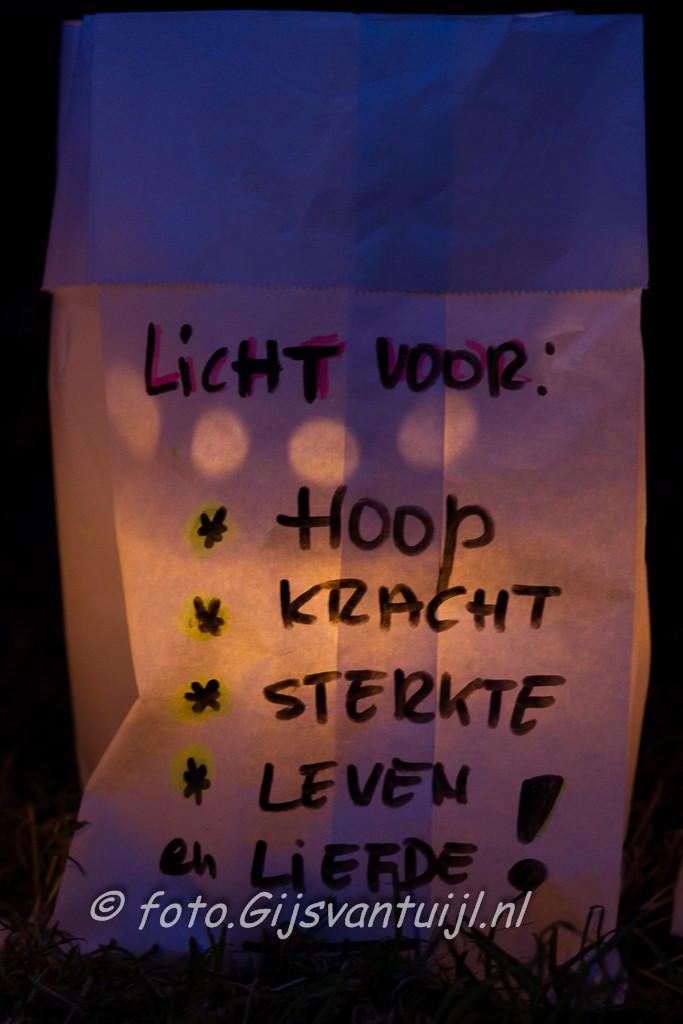 LicHT VOOR:
* HOOP
* KRACHT
* STERKTE
* LEVEN
en LiEFDE !
© foto.Gijsvantuijl.nl